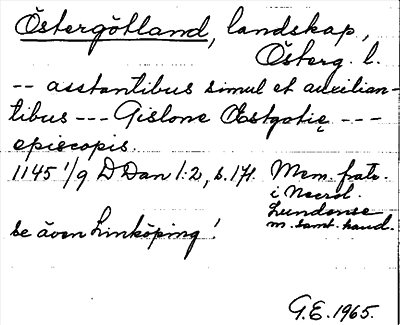 Östergötland, landskap,
Österg. l.
-- asstantibus simul et auxilian-
tibus --- Gislone Œstgotię ---
episcopis.
1145 1/9 D Dan 1:2, s. 171. Mem. fratr.
i Necrol.
Lundense
m. samt. hand.
se även Linköping!
G.E. 1965.